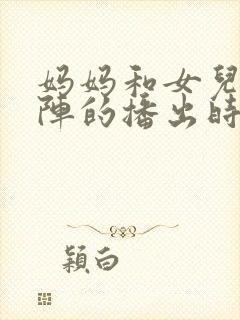 妈妈和女兒
陣的播出時
穎白